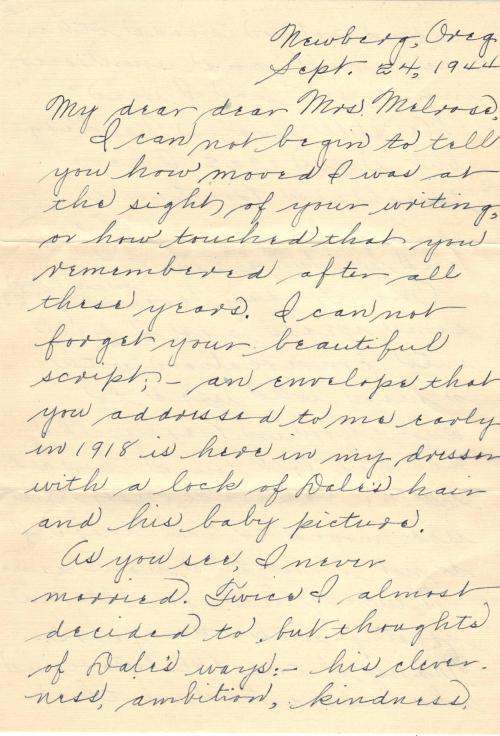 Newberg, Oreg
Sept. 24, 1944
My dear dear Mrs. Melrose,
I can not begin to tell
you how moved I was at
the sight of your writing,
or how touched that you
remembered after all
these years. I can not
forget your beautiful
script; - an envelope that
you addressed to me early
in 1918 is here in my dresser
with a lock of Dale's hair
and his baby picture.
As you see, I never
married. Twice I almost
decided to, but thoughts
of Dale's ways; - his clever-
ness, ambition, kindness,